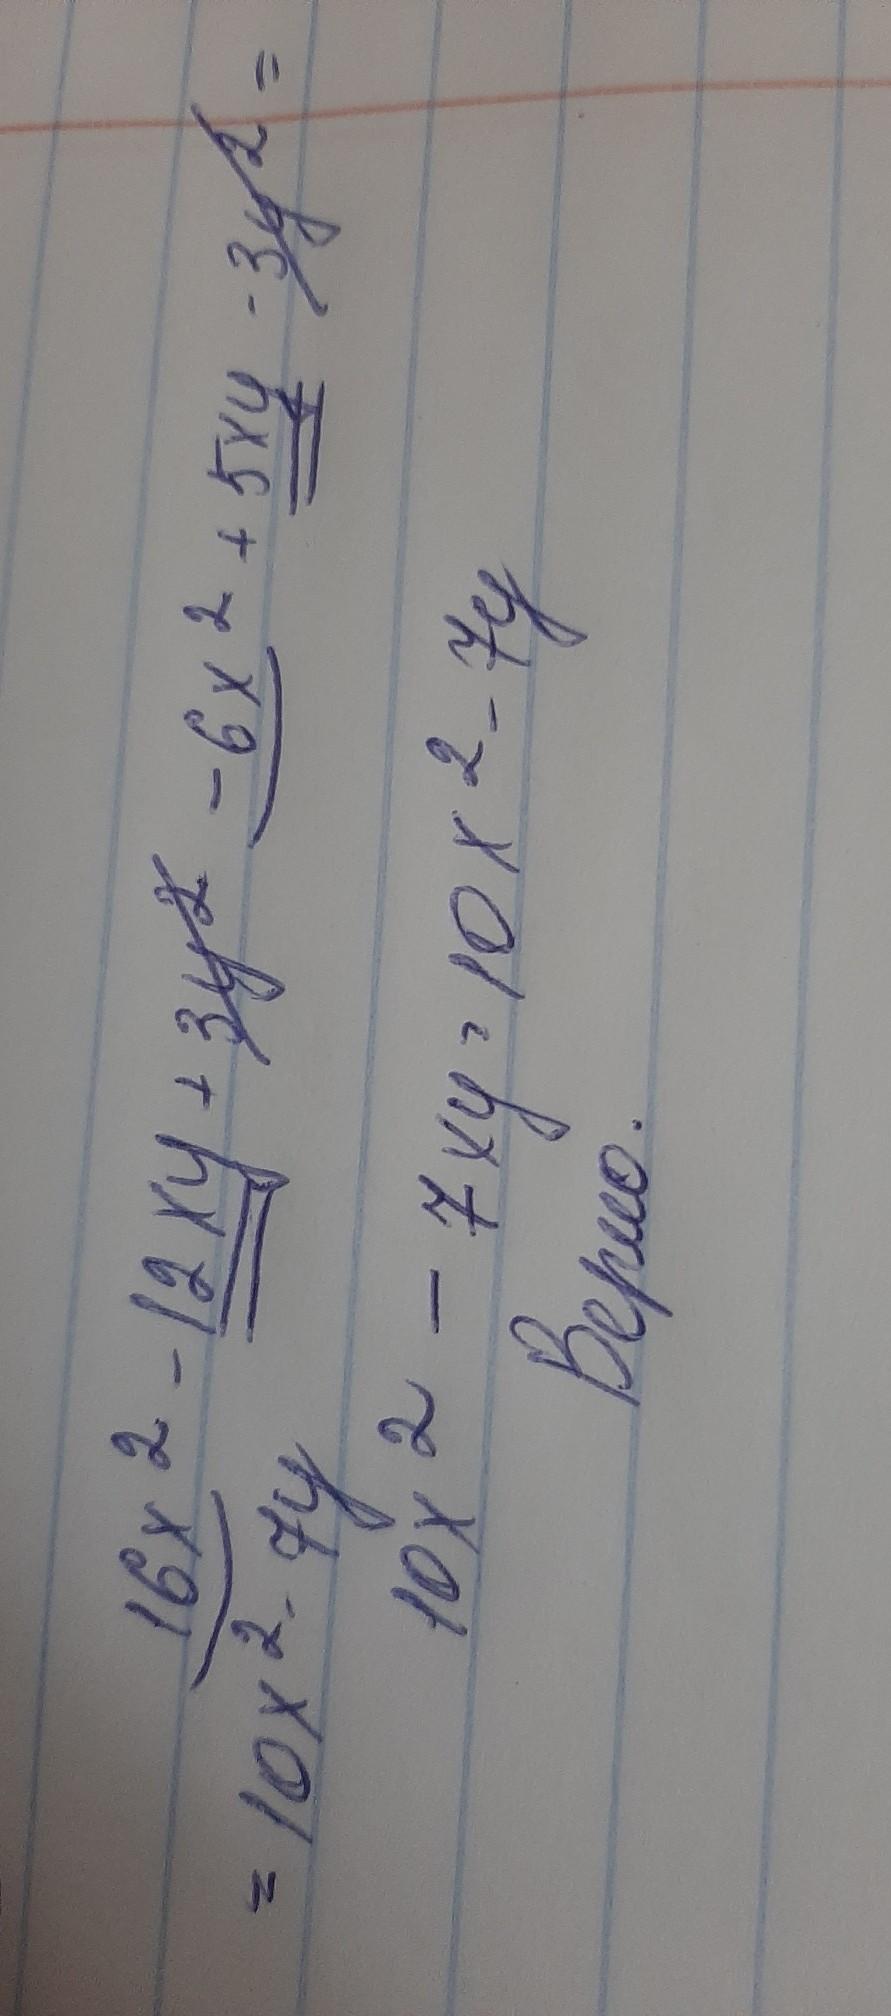 16x² - 12xy + 3y² - 6x² + 5xy - 3y² =
= 10x² - 7y
10x² - 7xy = 10x² - 7y
Верно.